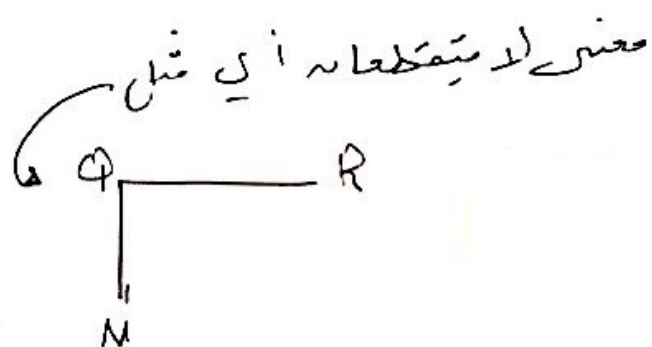 معنى لا يتقطعان أي مثل
Q R
M